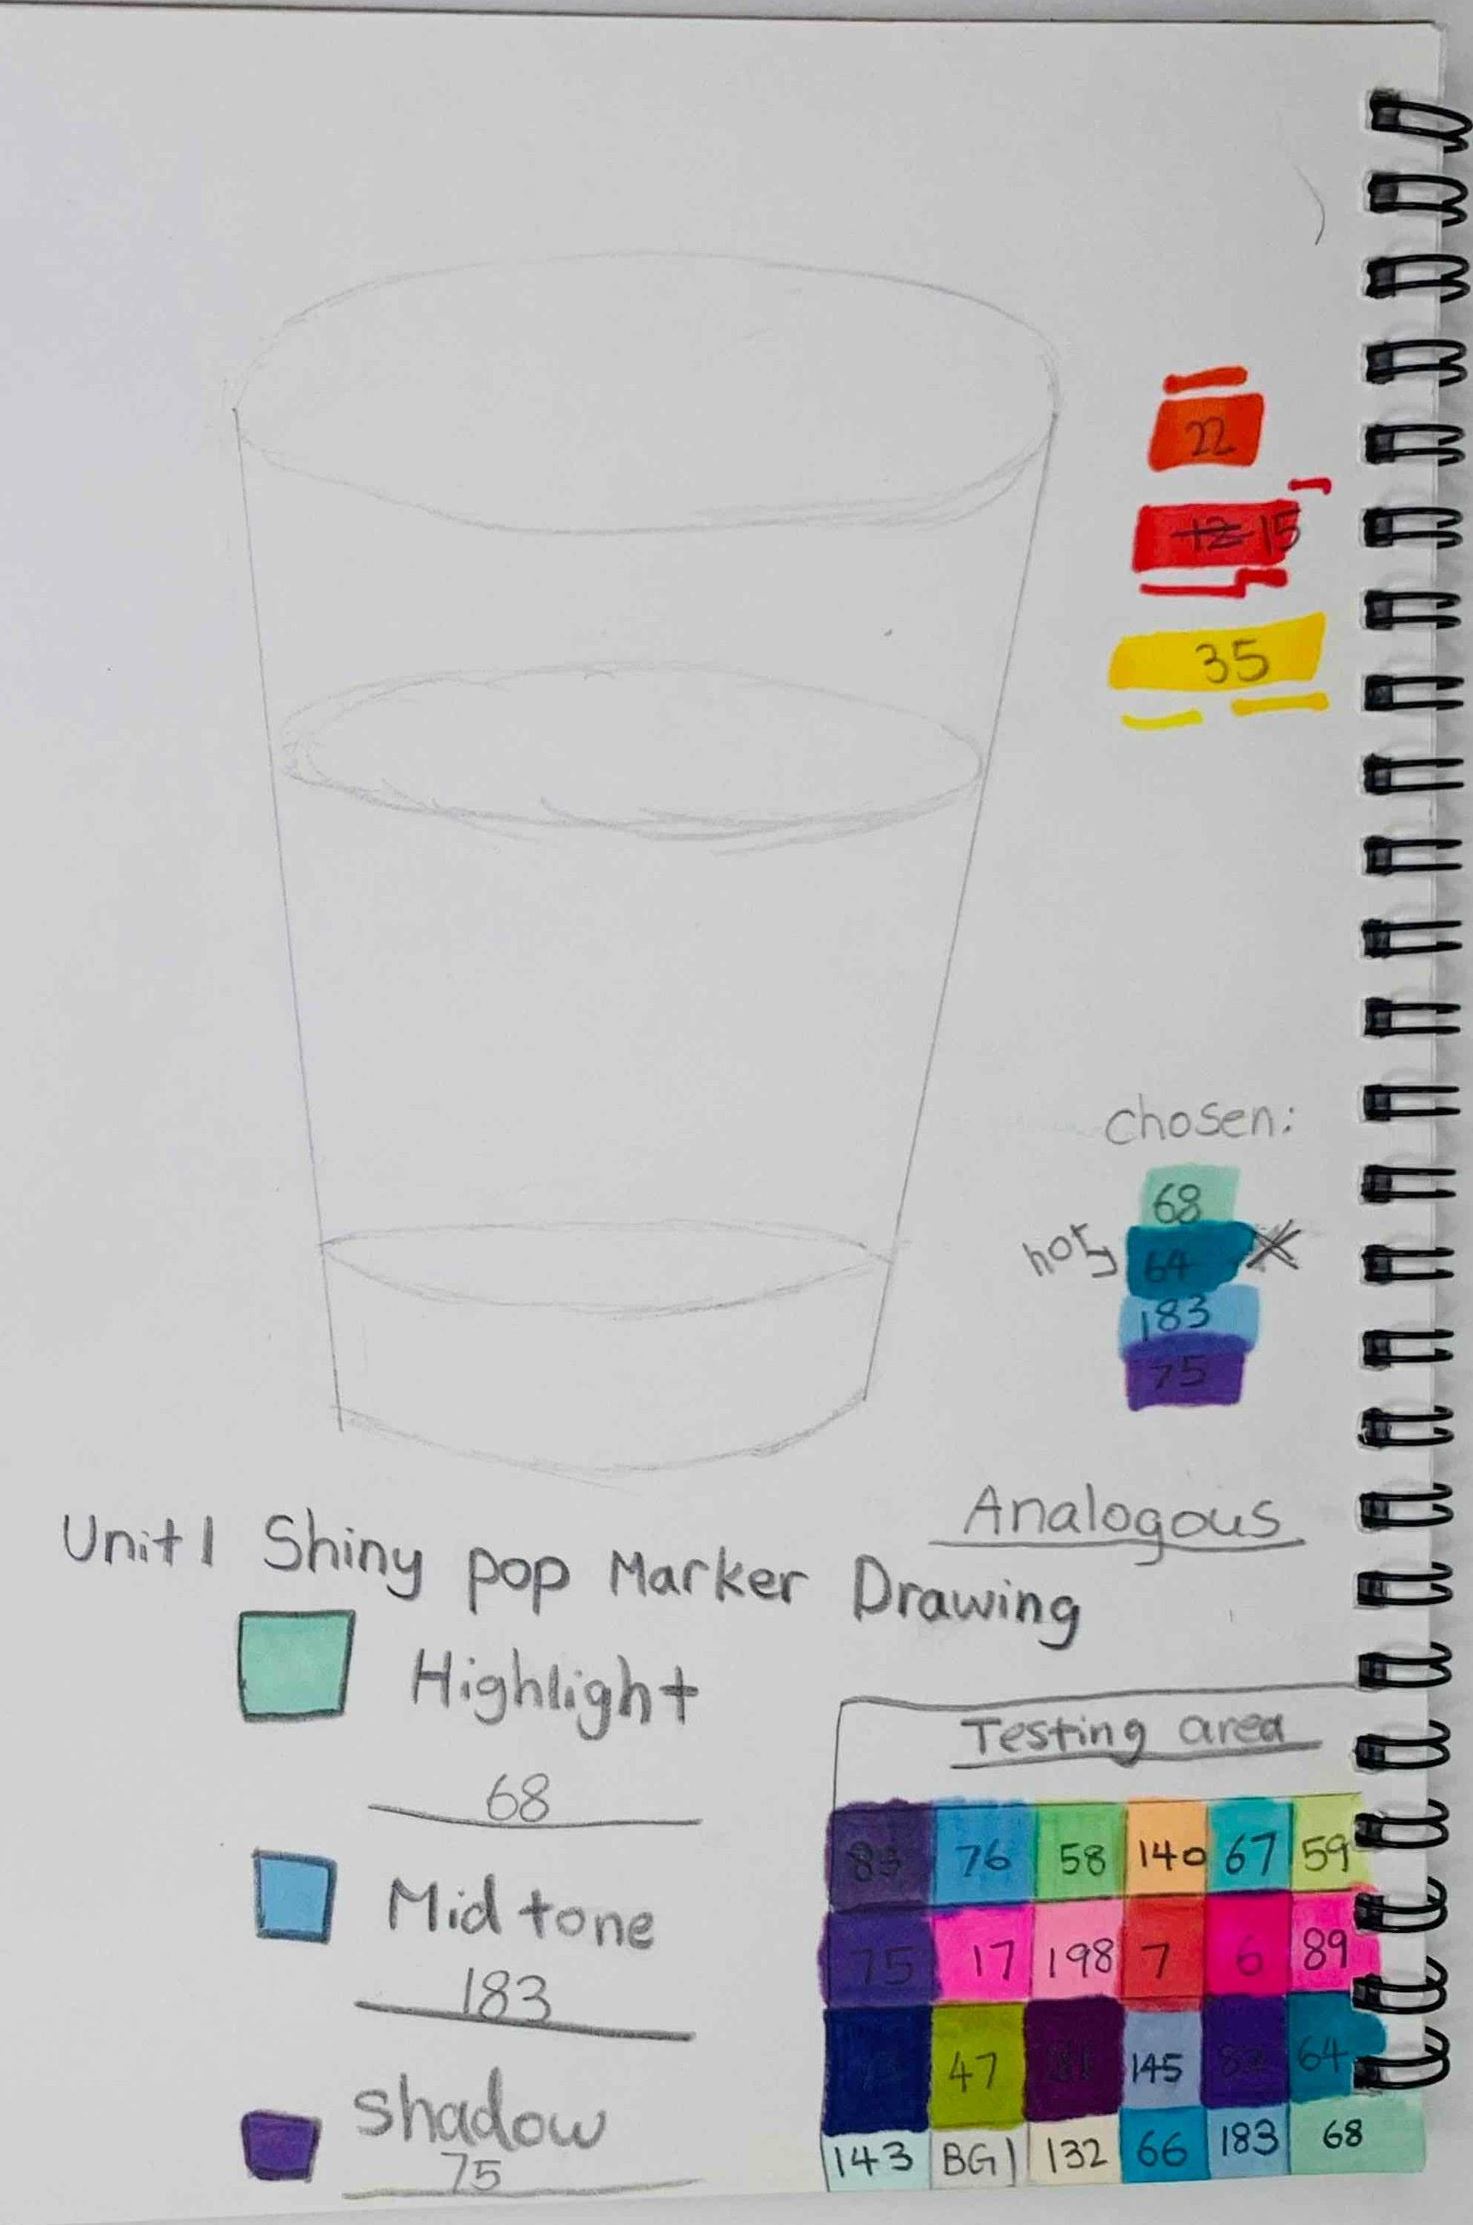 22
12 15
35
chosen:
68
not 64
183
75
Analogous
Unit 1 Shiny pop Marker Drawing
Highlight
68
Mid tone
183
shadow
75
Testing area
83 76 58 140 67 59
75 17 198 7 6 89
47 81 145 82 64
143 BG1 132 66 183 68